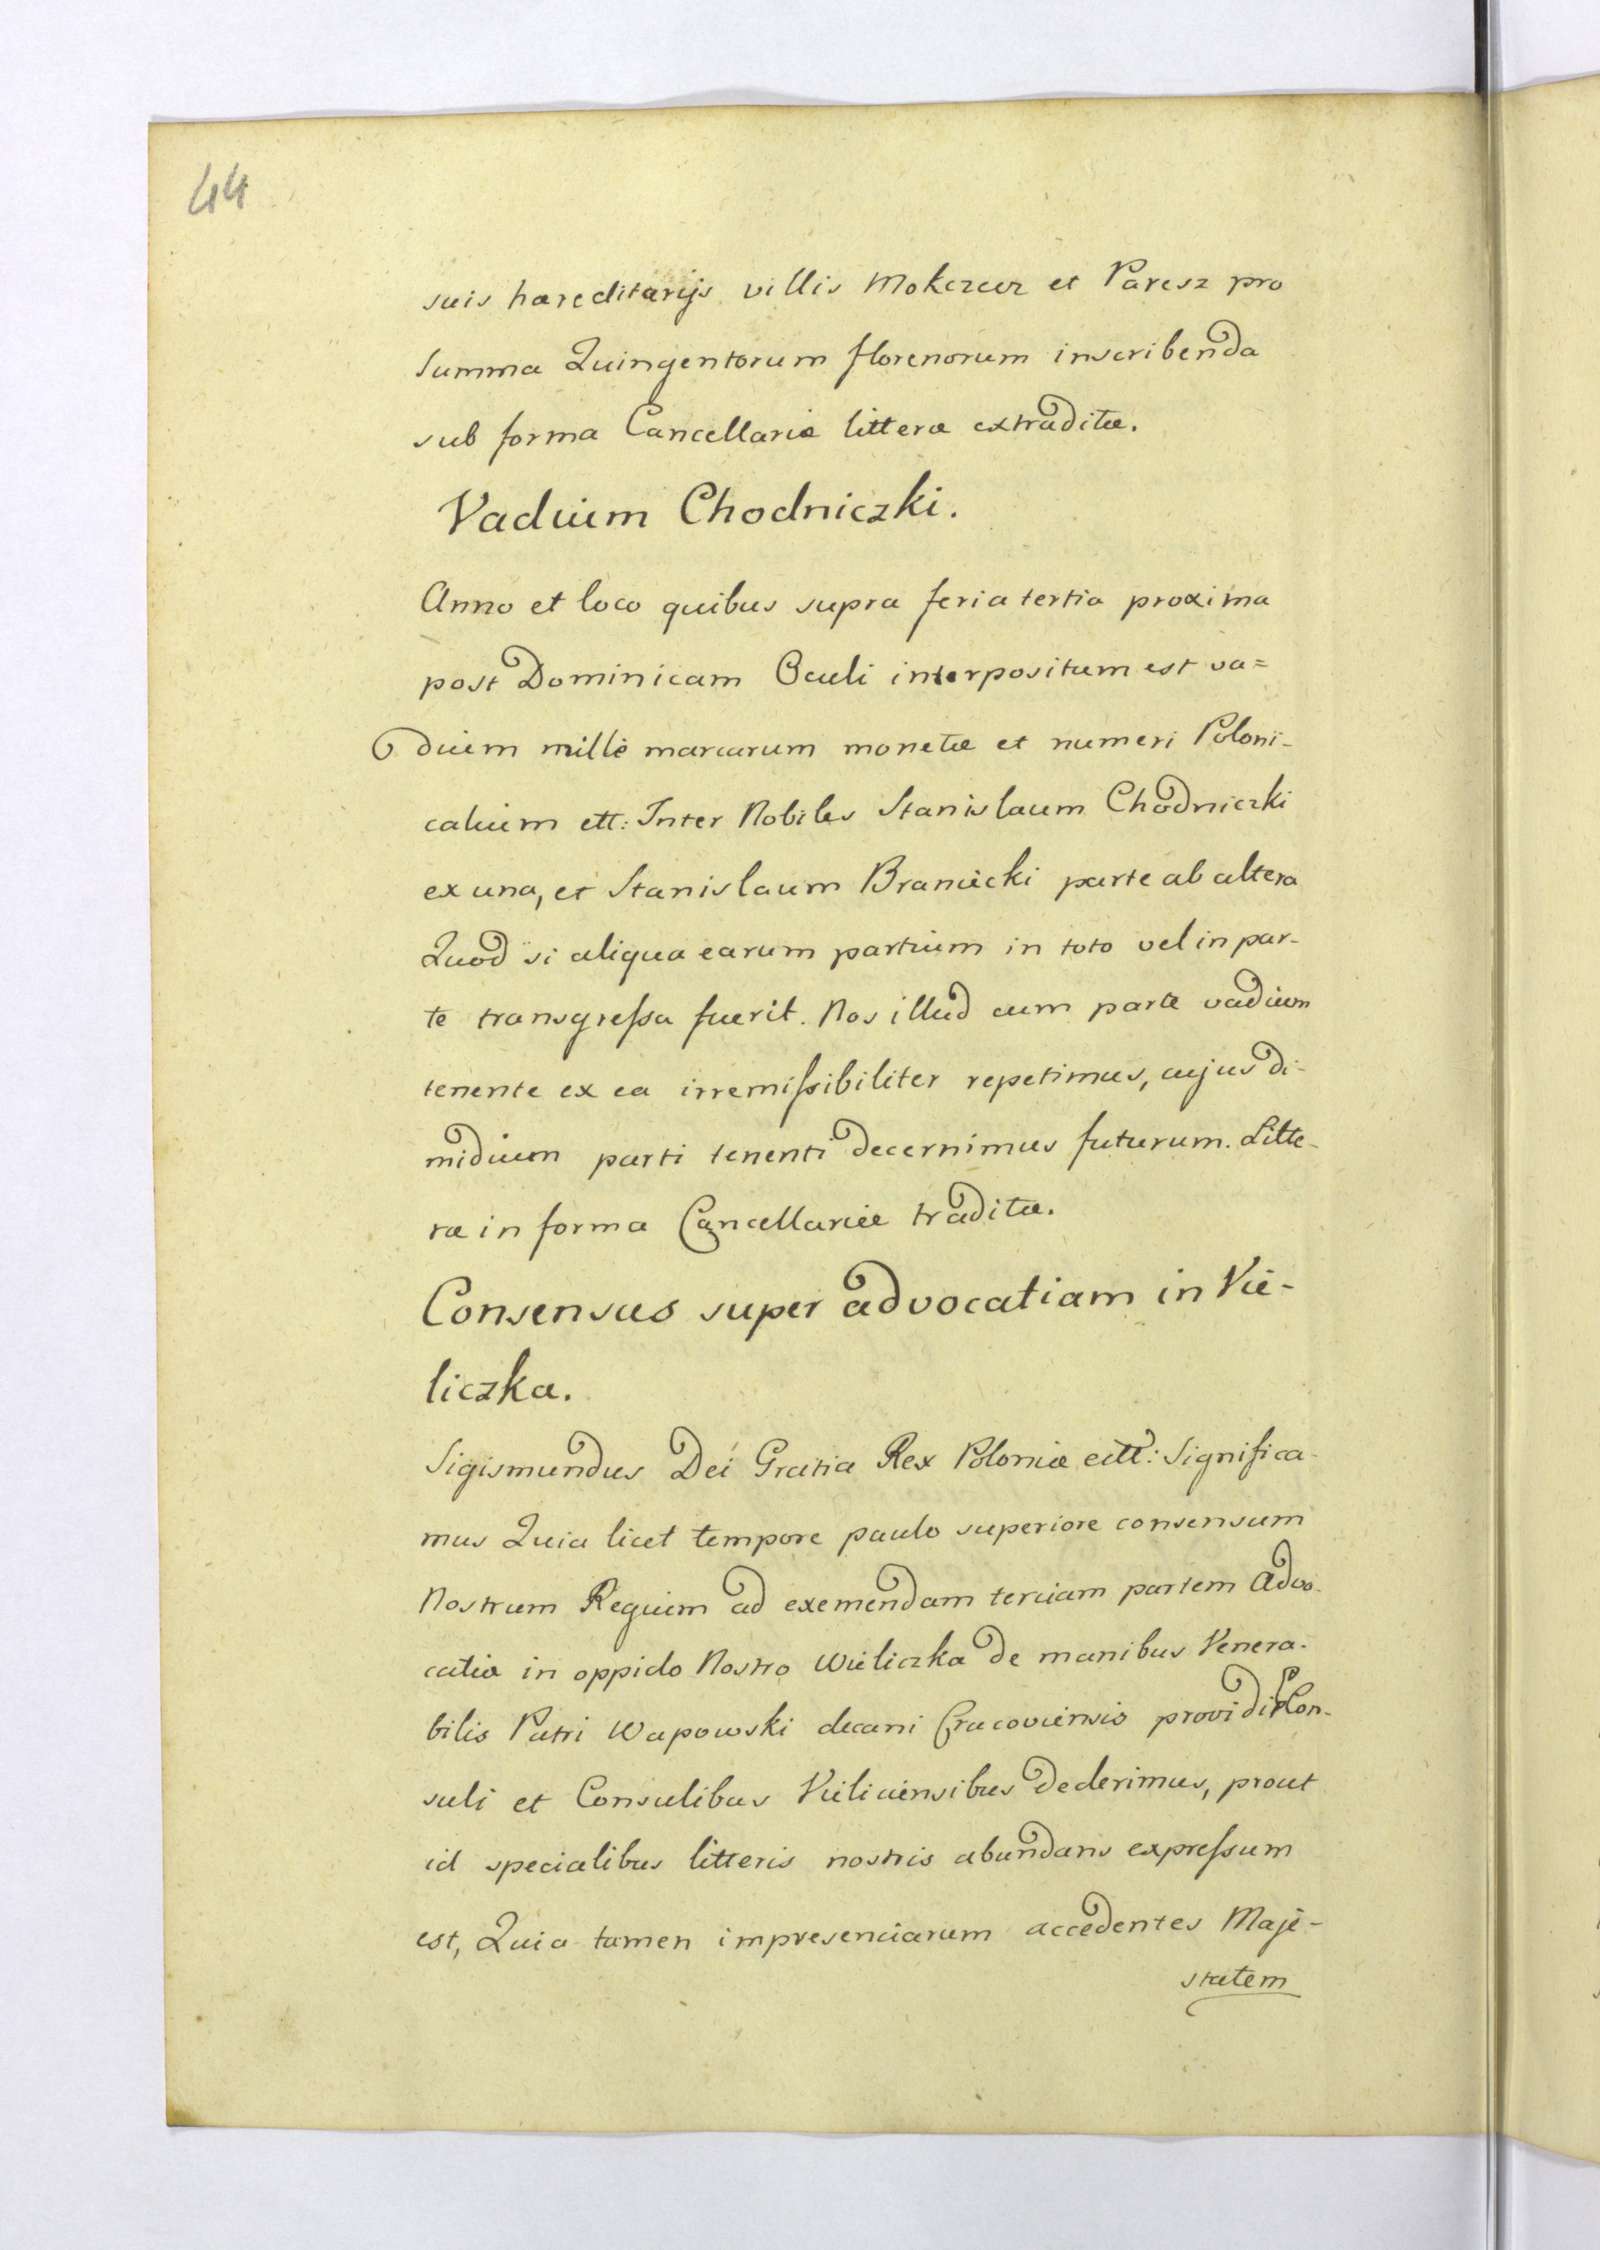 44
suis hæreditarijs villis Mokrzew et Paresz pro
summa Quingentorum florenorum inscribenda
sub forma Cancellariæ litteræ extraditæ.
Vadium Chodniczki.
Anno et loco quibus supra feria tertia proxima
post Dominicam Oculi interpositum est va=
dium mille marcarum monetæ et numeri Poloni-
calium ett: Inter Nobiles Stanislaum Chodniczki
ex una, et Stanislaum Braniecki parte ab altera
Quod si aliqua earum partium in toto vel in par-
te transgreſsa fuerit. Nos illud cum parte vadium
tenente ex ea irremiſsibiliter repetimus, cujus di-
midium parti tenenti decernimus futurum. Litte-
ræ in forma Cancellariæ traditæ.
Consensus super advocatiam in Vie-
liczka.
Sigismundus Dei Gratia Rex Poloniæ ett: Significa-
mus Quia licet tempore paulo superiore consensum
Nostrum Regium ad exemendam terciam partem Advo-
catiæ in oppido Nostro Wieliczka de manibus Venera-
bilis Petri Wapowski decani Cracoviensis providi Con-
suli et Consulibus Vieliciensibus dederimus, prout
id specialibus litteris nostris abundans expreſsum
est, Quia tamen impresenciarum accedentes Maje-
statem